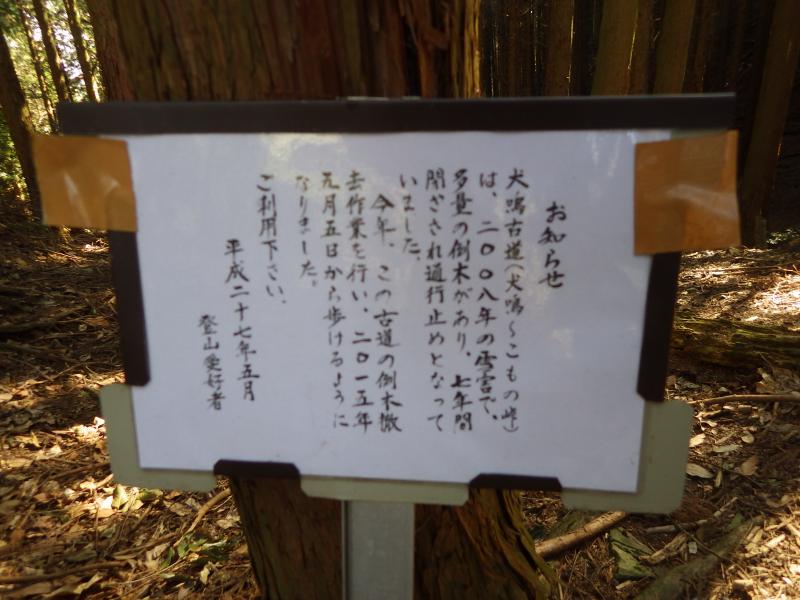 お知らせ
犬鳴古道(犬鳴～こもの峠)
は、二〇〇八年の雪害で、
多量の倒木があり、七年間
閉ざされ通行止めとなって
いました。
今年、この古道の倒木撤
去作業を行い、二〇一五年
五月五日から歩けるように
なりました。
ご利用下さい。
平成二十七年五月
登山愛好者